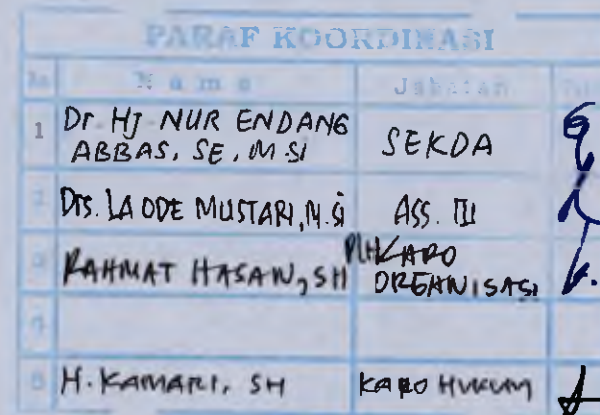 PARAF KOORDINASI
No Nama Jabatan
1 Dr. HJ. NUR ENDANG ABBAS, SE, M.SI SEKDA
2 Drs. LA ODE MUSTARI, M.Si ASS. III
3 RAHMAT HASAN, SH PLH KARO ORGANISASI
4
5 H. KAMARI, SH KARO HUKUM